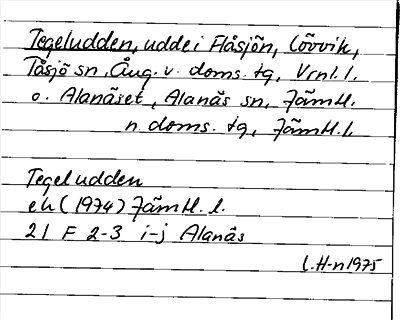 Tegeludden, udde i Flåsjön, Lövvik,
Tåsjö sn, Ång. v. doms. tg, Vrnl. l.
o. Alanäset, Alanäs sn, Jämtl.
n. doms. tg, Jämtl. l.
Tegeludden
ek (1974) Jämtl. l.
21 F 2-3 i-j Alanäs
L.H-n 1975